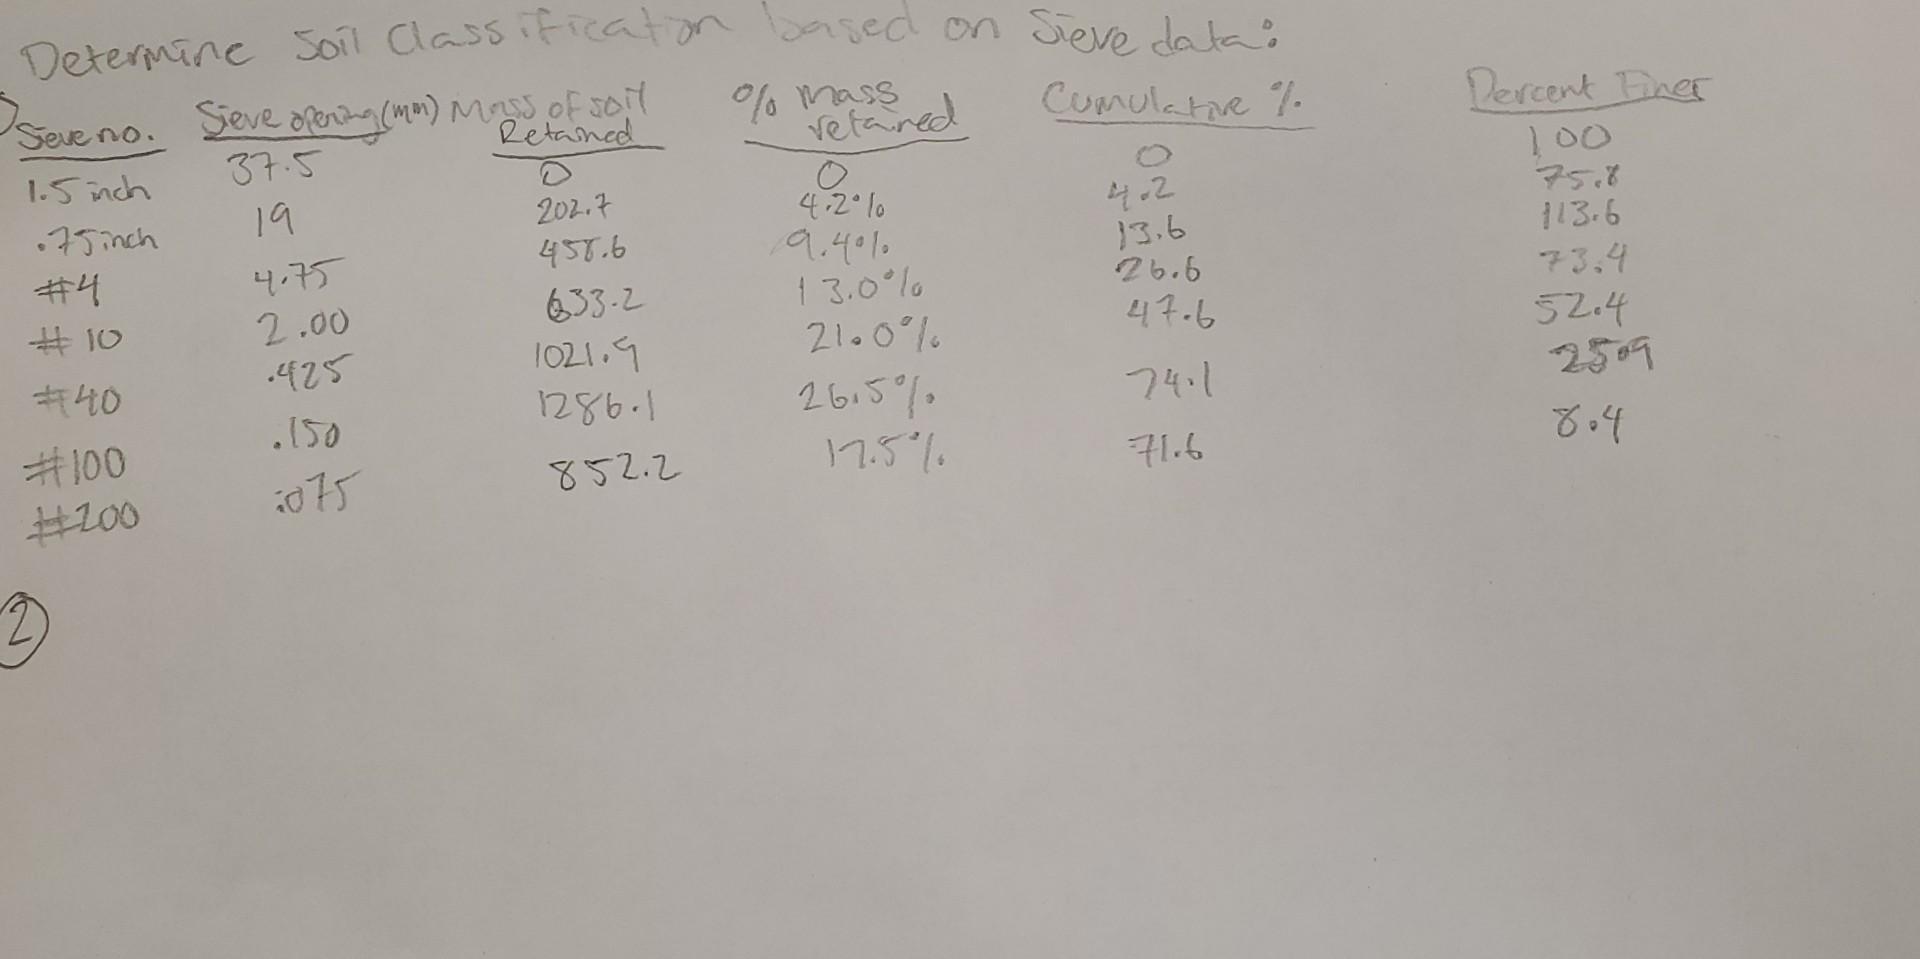 Determine Soil Classification based on Sieve data:
Sieve no. Sieve opening (mm) Mass of soil Retained % mass retained Cumulative % Percent Finer
1.5 inch 37.5 0 0 0 100
.75 inch 19 202.7 4.2% 4.2 75.8
#4 4.75 458.6 9.4% 13.6 113.6
#10 2.00 633.2 13.0% 26.6 73.4
#40 .425 1021.9 21.0% 47.6 52.4
#100 .150 1286.1 26.5% 74.1 25.9
#200 .075 852.2 17.5% 71.6 8.4
2